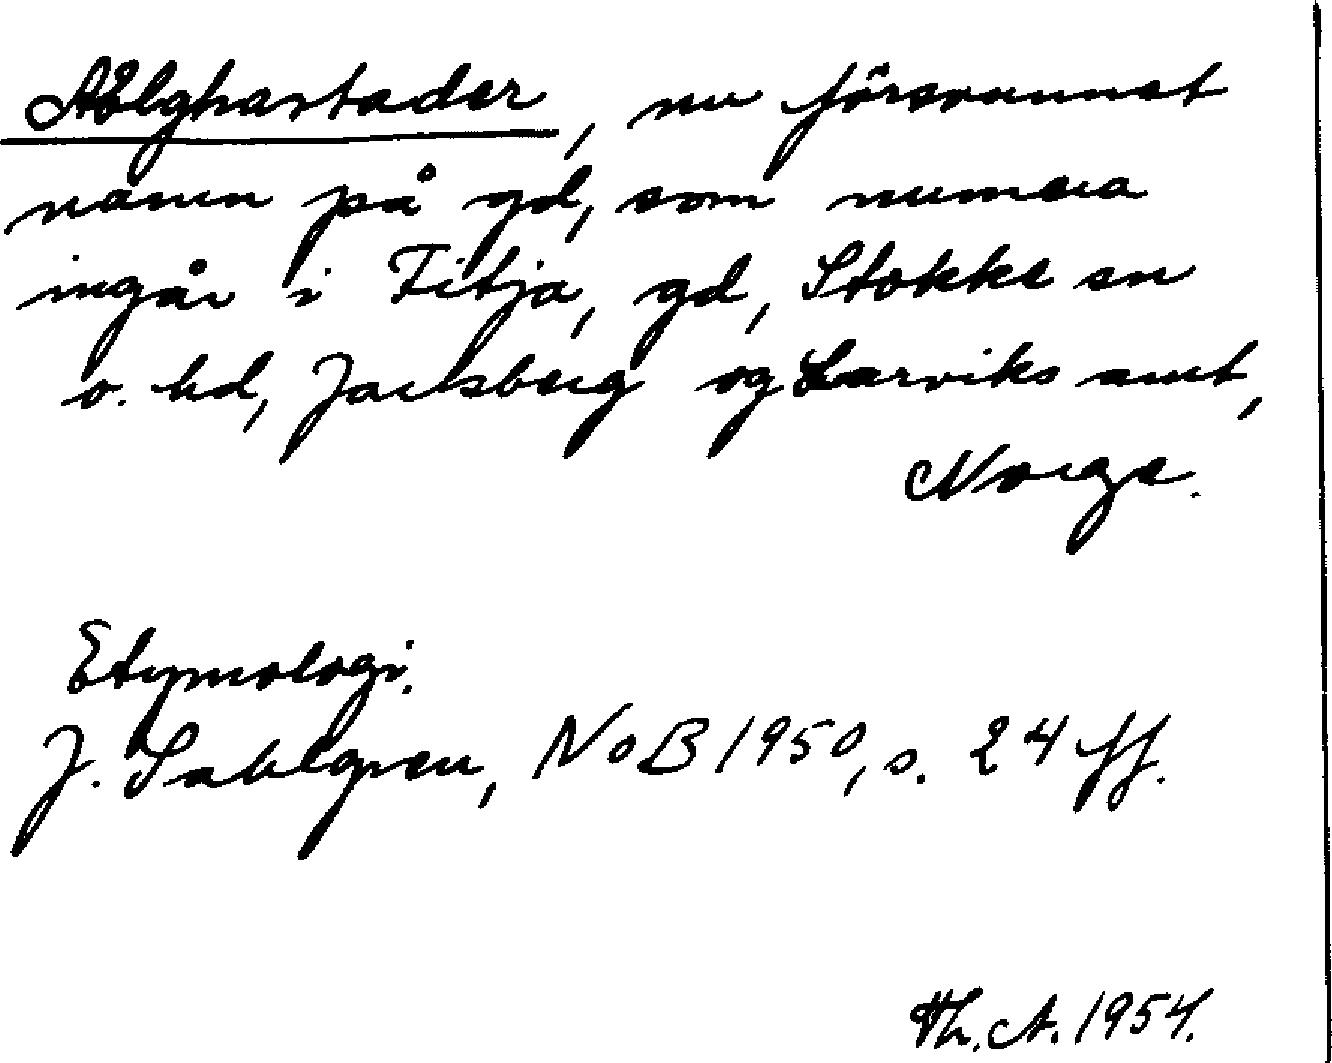 Ælghastader, nu försvunnet
namn på gd, som numera
ingår i Fitja, gd, Stokke sn
o. hd, Jarlsberg og Larviks amt,
Norge.
Etymologi.
J. Sahlgren, NoB 1950, s. 24 ff.
Th. A. 1954.